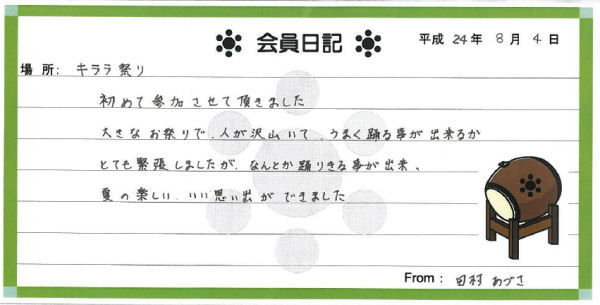 会員日記
平成 24年 8月 4日
場所: キララ祭り
初めて参加させて頂きました
大きなお祭りで、人が沢山いて、うまく踊る事が出来るか
とても緊張しましたが、なんとか踊りきる事が出来、
夏の楽しい、いい思い出ができました
From: 田村 あづさ